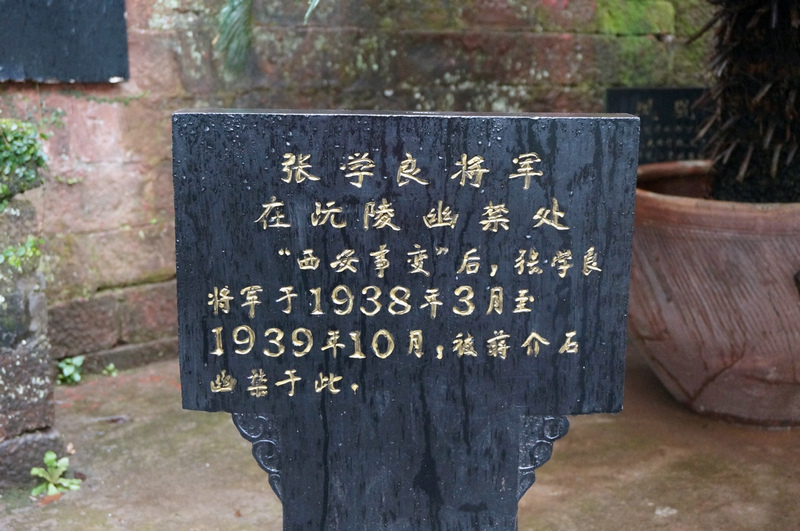 张学良将军
在沅陵幽禁处
“西安事变”后，张学良
将军于1938年3月至
1939年10月，被蒋介石
幽禁于此.